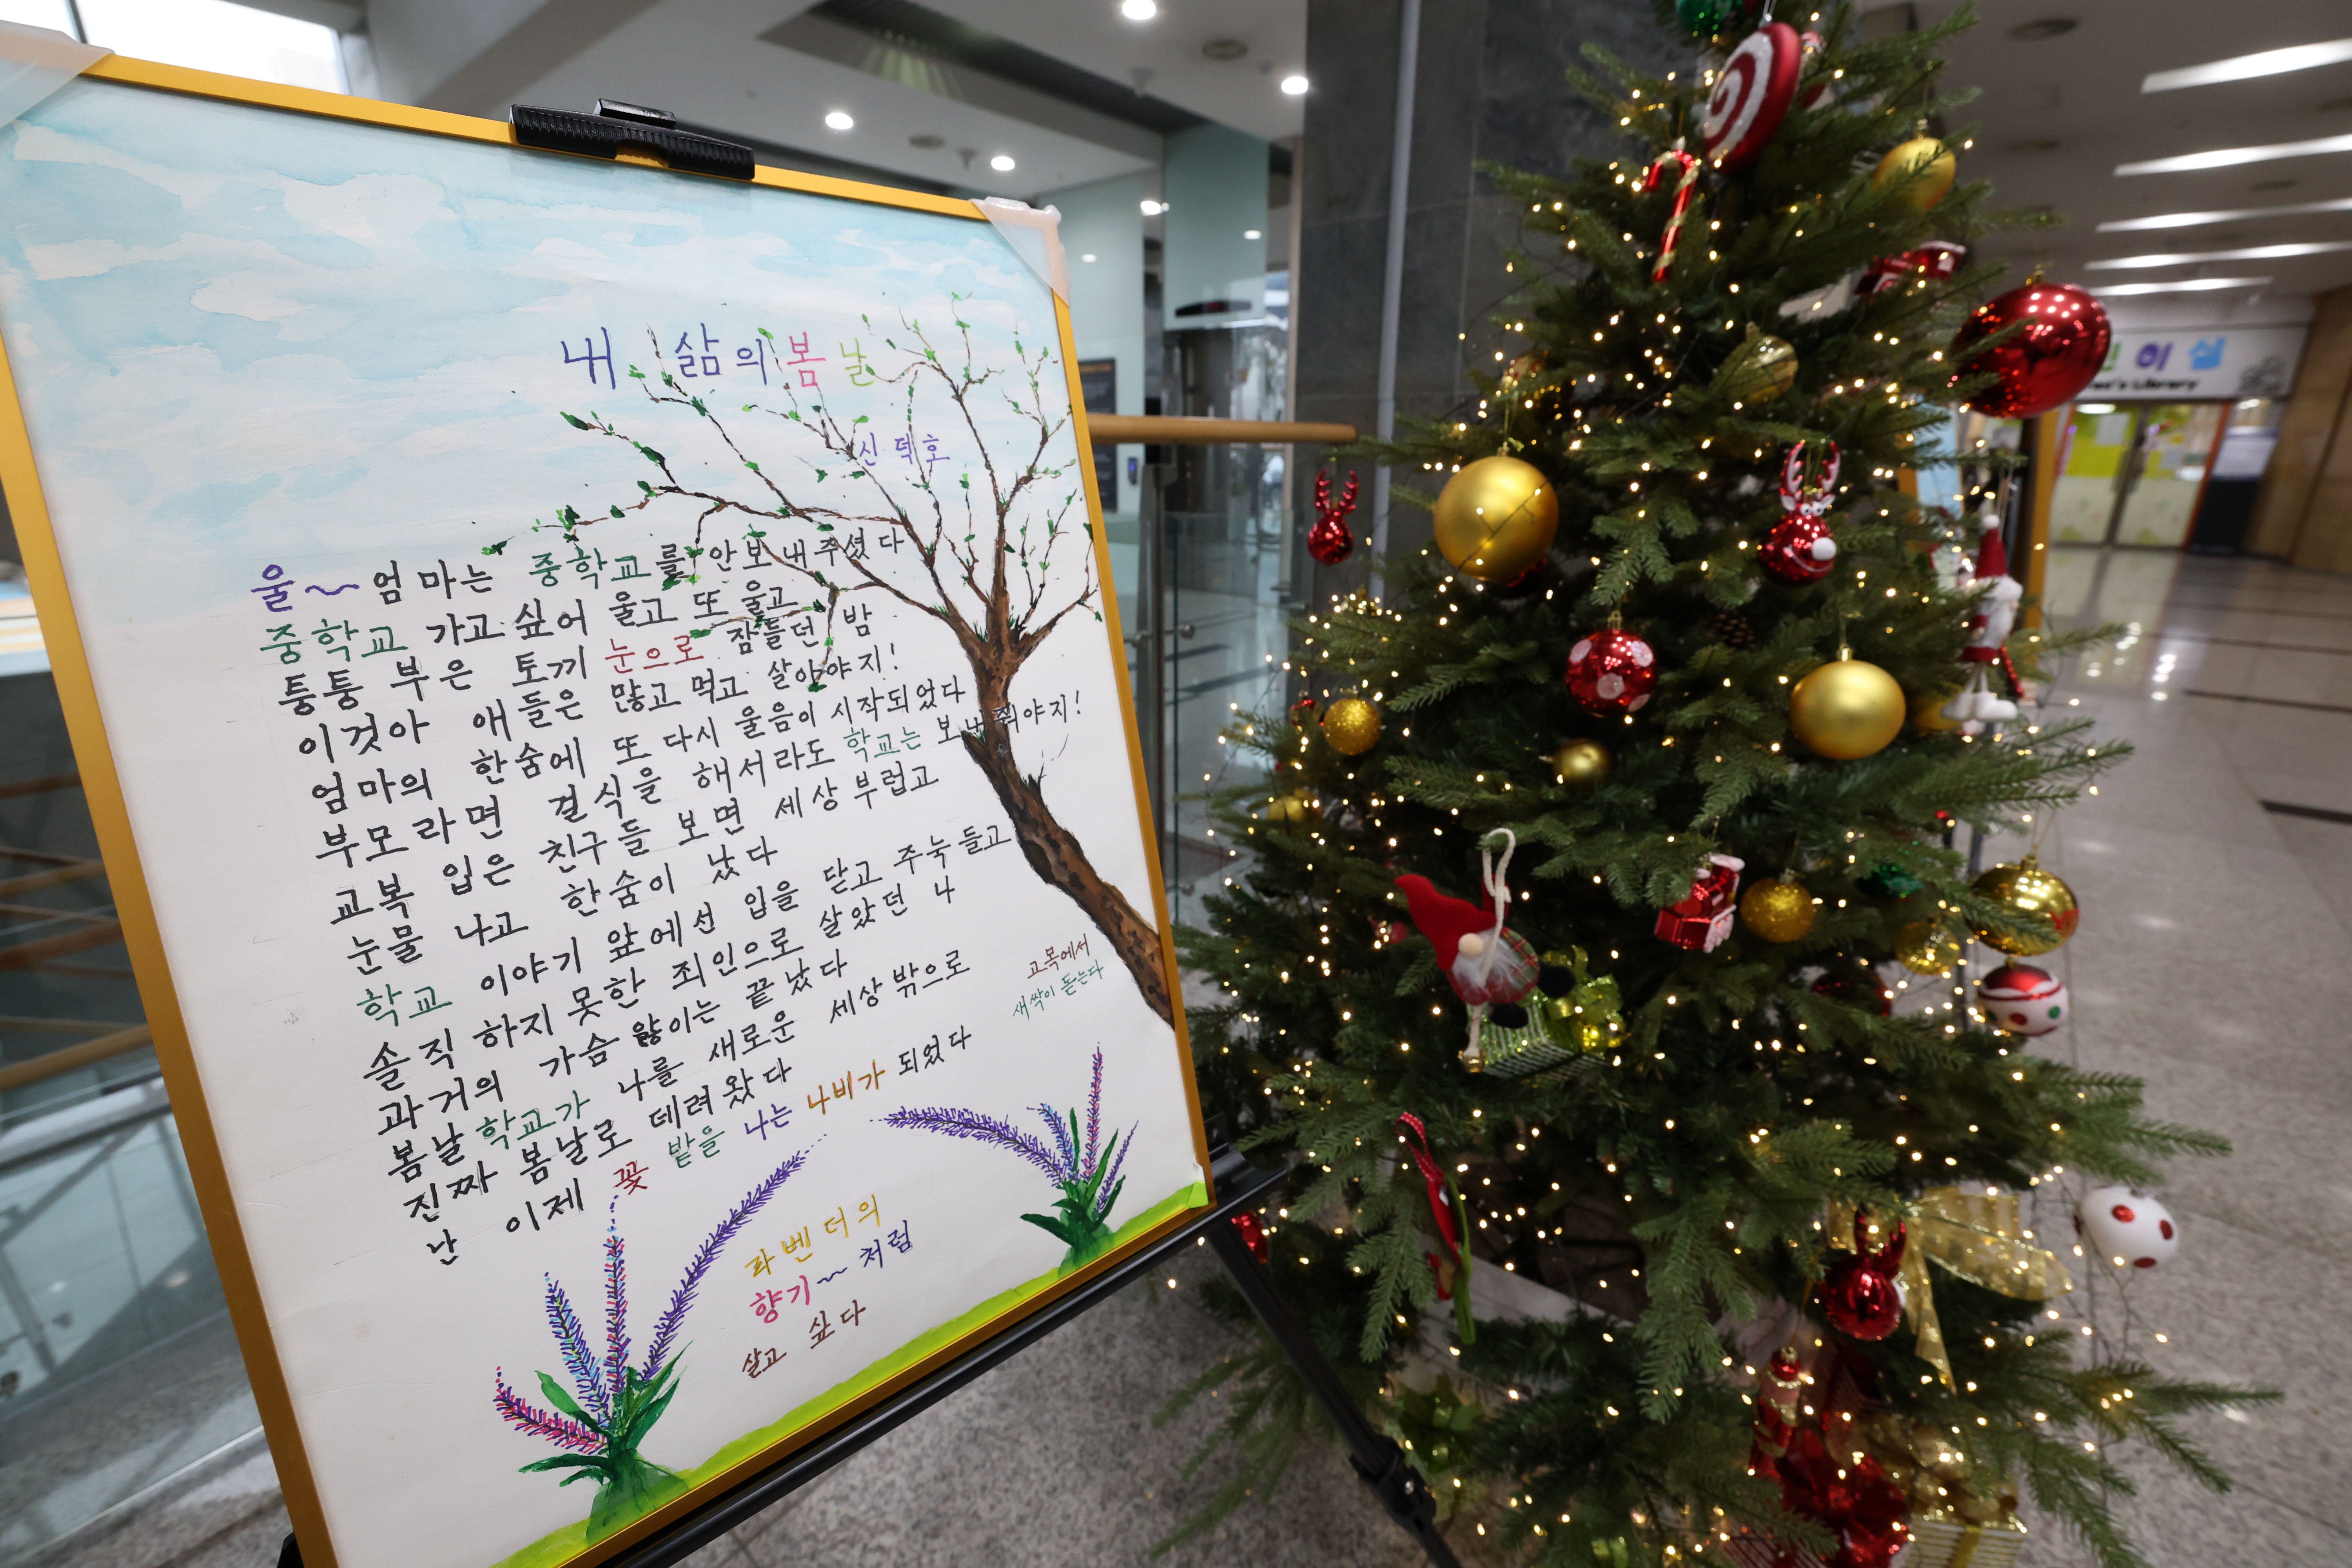 내 삶의 봄날
신덕호
울~엄마는 중학교를 안보내주셨다
중학교 가고싶어 울고 또 울고
퉁퉁 부은 토끼 눈으로 잠들던 밤
이것아 애들은 많고 먹고 살아야지!
엄마의 한숨에 또 다시 울음이 시작되었다
부모라면 결식을 해서라도 학교는 보내줘야지!
교복 입은 친구들 보면 세상 부럽고
눈물 나고 한숨이 났다
학교 이야기 앞에선 입을 닫고 주눅들고
솔직 하지 못한 죄인으로 살았던 나
과거의 가슴 앓이는 끝났다
봄날 학교가 나를 새로운 세상 밖으로
진짜 봄날로 데려왔다
난 이제 꽃 밭을 나는 나비가 되었다
고목에서
새싹이 돋는다
라벤더의
향기~처럼
살고 싶다
이실
Library